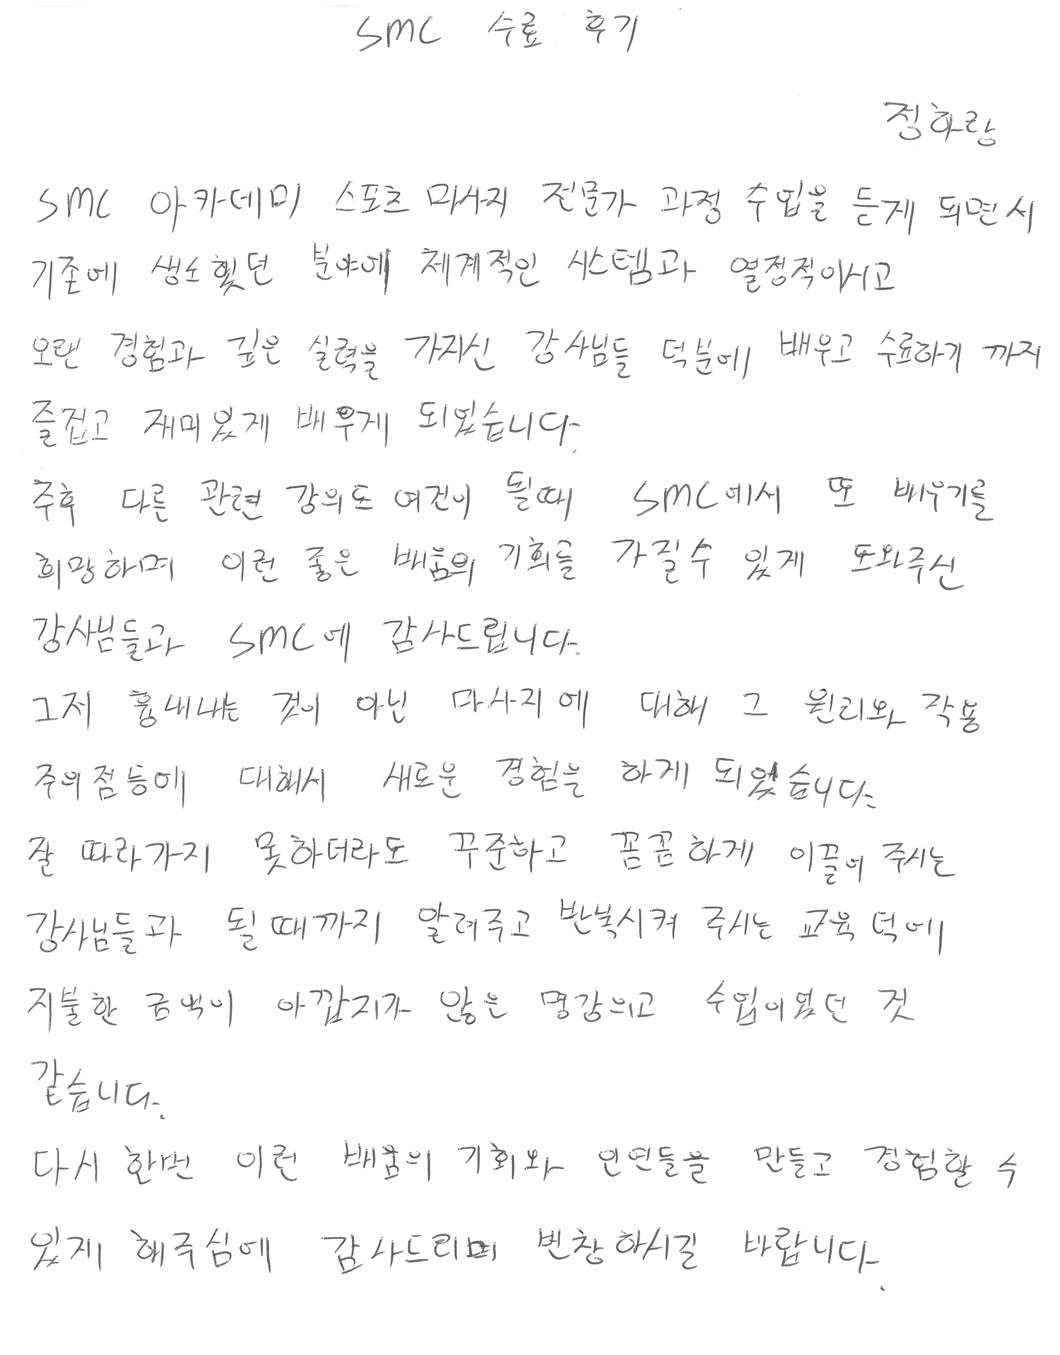 SMC 수료 후기
정하랑
SMC 아카데미 스포츠 마사지 전문가 과정 수업을 듣게 되면서
기존에 생소했던 분야에 체계적인 시스템과 열정적이시고
오랜 경험과 깊은 실력을 가지신 강사님들 덕분에 배우고 수료하기 까지
즐겁고 재미있게 배우게 되었습니다.
추후 다른 관련 강의도 여건이 될때 SMC에서 또 배우기를
희망하며 이런 좋은 배움의 기회를 가질수 있게 도와주신
강사님들과 SMC에 감사드립니다.
그저 흉내내는 것이 아닌 마사지에 대해 그 원리와 작용
주의점등에 대해서 새로운 경험을 하게 되었습니다.
잘 따라가지 못하더라도 꾸준하고 꼼꼼하게 이끌어 주시는
강사님들과 될때까지 알려주고 반복시켜 주시는 교육 덕에
지불한 금액이 아깝지가 않은 명강의고 수업이였던 것
같습니다.
다시 한번 이런 배움의 기회와 인연들을 만들고 경험할 수
있게 해주심에 감사드리며 번창하시길 바랍니다.